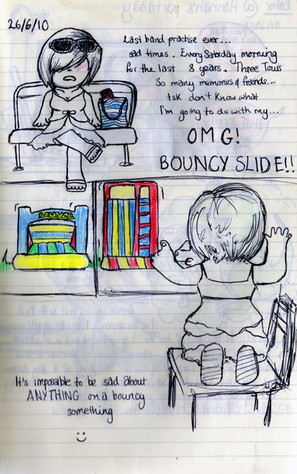 26/6/10
Last band practise ever...
sad times. Every Saterday morning
for the last 8 years. Three Tours
So many memories & friends...
I ask don't know what
I'm going to do with my...
OMG!
BOUNCY SLIDE!!
BOUNCE
It's impossible to be sad about
ANYTHING on a bouncy
something
:)